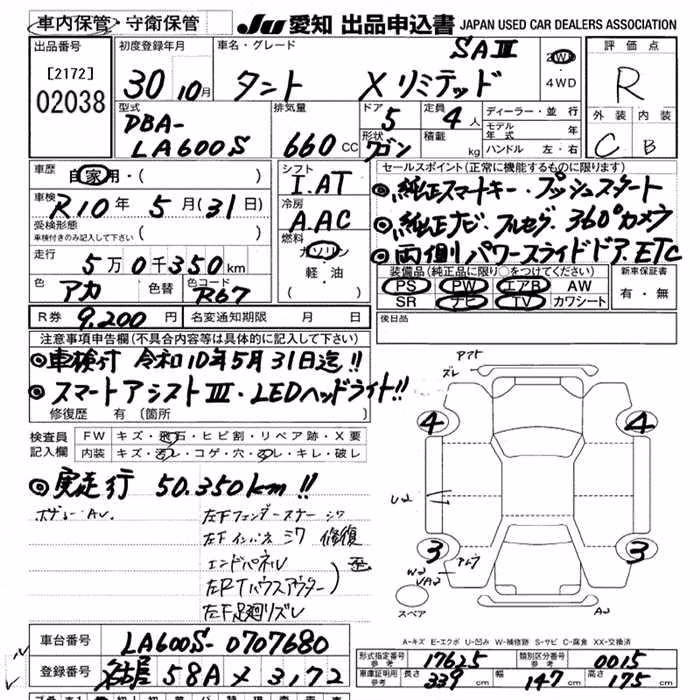 車内保管・守衛保管 JU 愛知 出品申込書 JAPAN USED CAR DEALERS ASSOCIATION
出品番号 初度登録年月 車名・グレード SAⅢ 2WD 評価点
[2172] 30 10月 タント Xリミテッド 4WD R
02038 型式 排気量 ドア 5 定員 4人 ディーラー・並行 外装 内装
DBA- LA600S 660cc 形状 ワゴン 積載 kg モデル年式 年 ハンドル 左・右 C B
車歴 自家用・( ) シフト I.AT セールスポイント(正常に機能するものに限ります)
車検 R10年5月(31日) 冷房 A.AC ◎純正スマートキー・プッシュスタート
受検形態 車検付きのみ記入して下さい ( ) 燃料 ガソリン・軽・油 ◎純正ナビ・フルセグ・360°カメラ
走行 5万0千350km ◎両側パワースライドドア.ETC
色 アカ 色替 色コード R67 装備品(純正品に限り○をつけてください) 新車保証書
PS PW エアB AW 有・無
SR ナビ TV カワシート
R券 9.200円 名変通知期限 月 日 後日品
注意事項申告欄(不具合内容等は具体的に記入して下さい)
◎車検付 令和10年5月31日迄!!
◎スマートアシストⅢ・LEDヘッドライト!!
修復歴 有(箇所
検査員記入欄 FW キズ・飛石・ヒビ割・リペア跡・X要
内装 キズ・汚レ・コゲ・穴・スレ・キレ・破レ
◎実走行 50.350km!!
左Fフェンダーステー シワ
左Fインパネ シワ 修復
エンドパネル
左RTハウスアウター
アフト ズレ
4 4
U2
3 3
W2
スペア A2
A-キズ E-エクボ U-凹み W-補修跡 S-サビ C-腐食 XX-交換済
車台番号 LA600S-0707680
登録番号 名古屋 58A メ 3172
形式指定番号 参考 17625 類別区分番号 参考 0015
車庫証明用 参考 長さ 339cm 幅 147cm 高さ 175cm